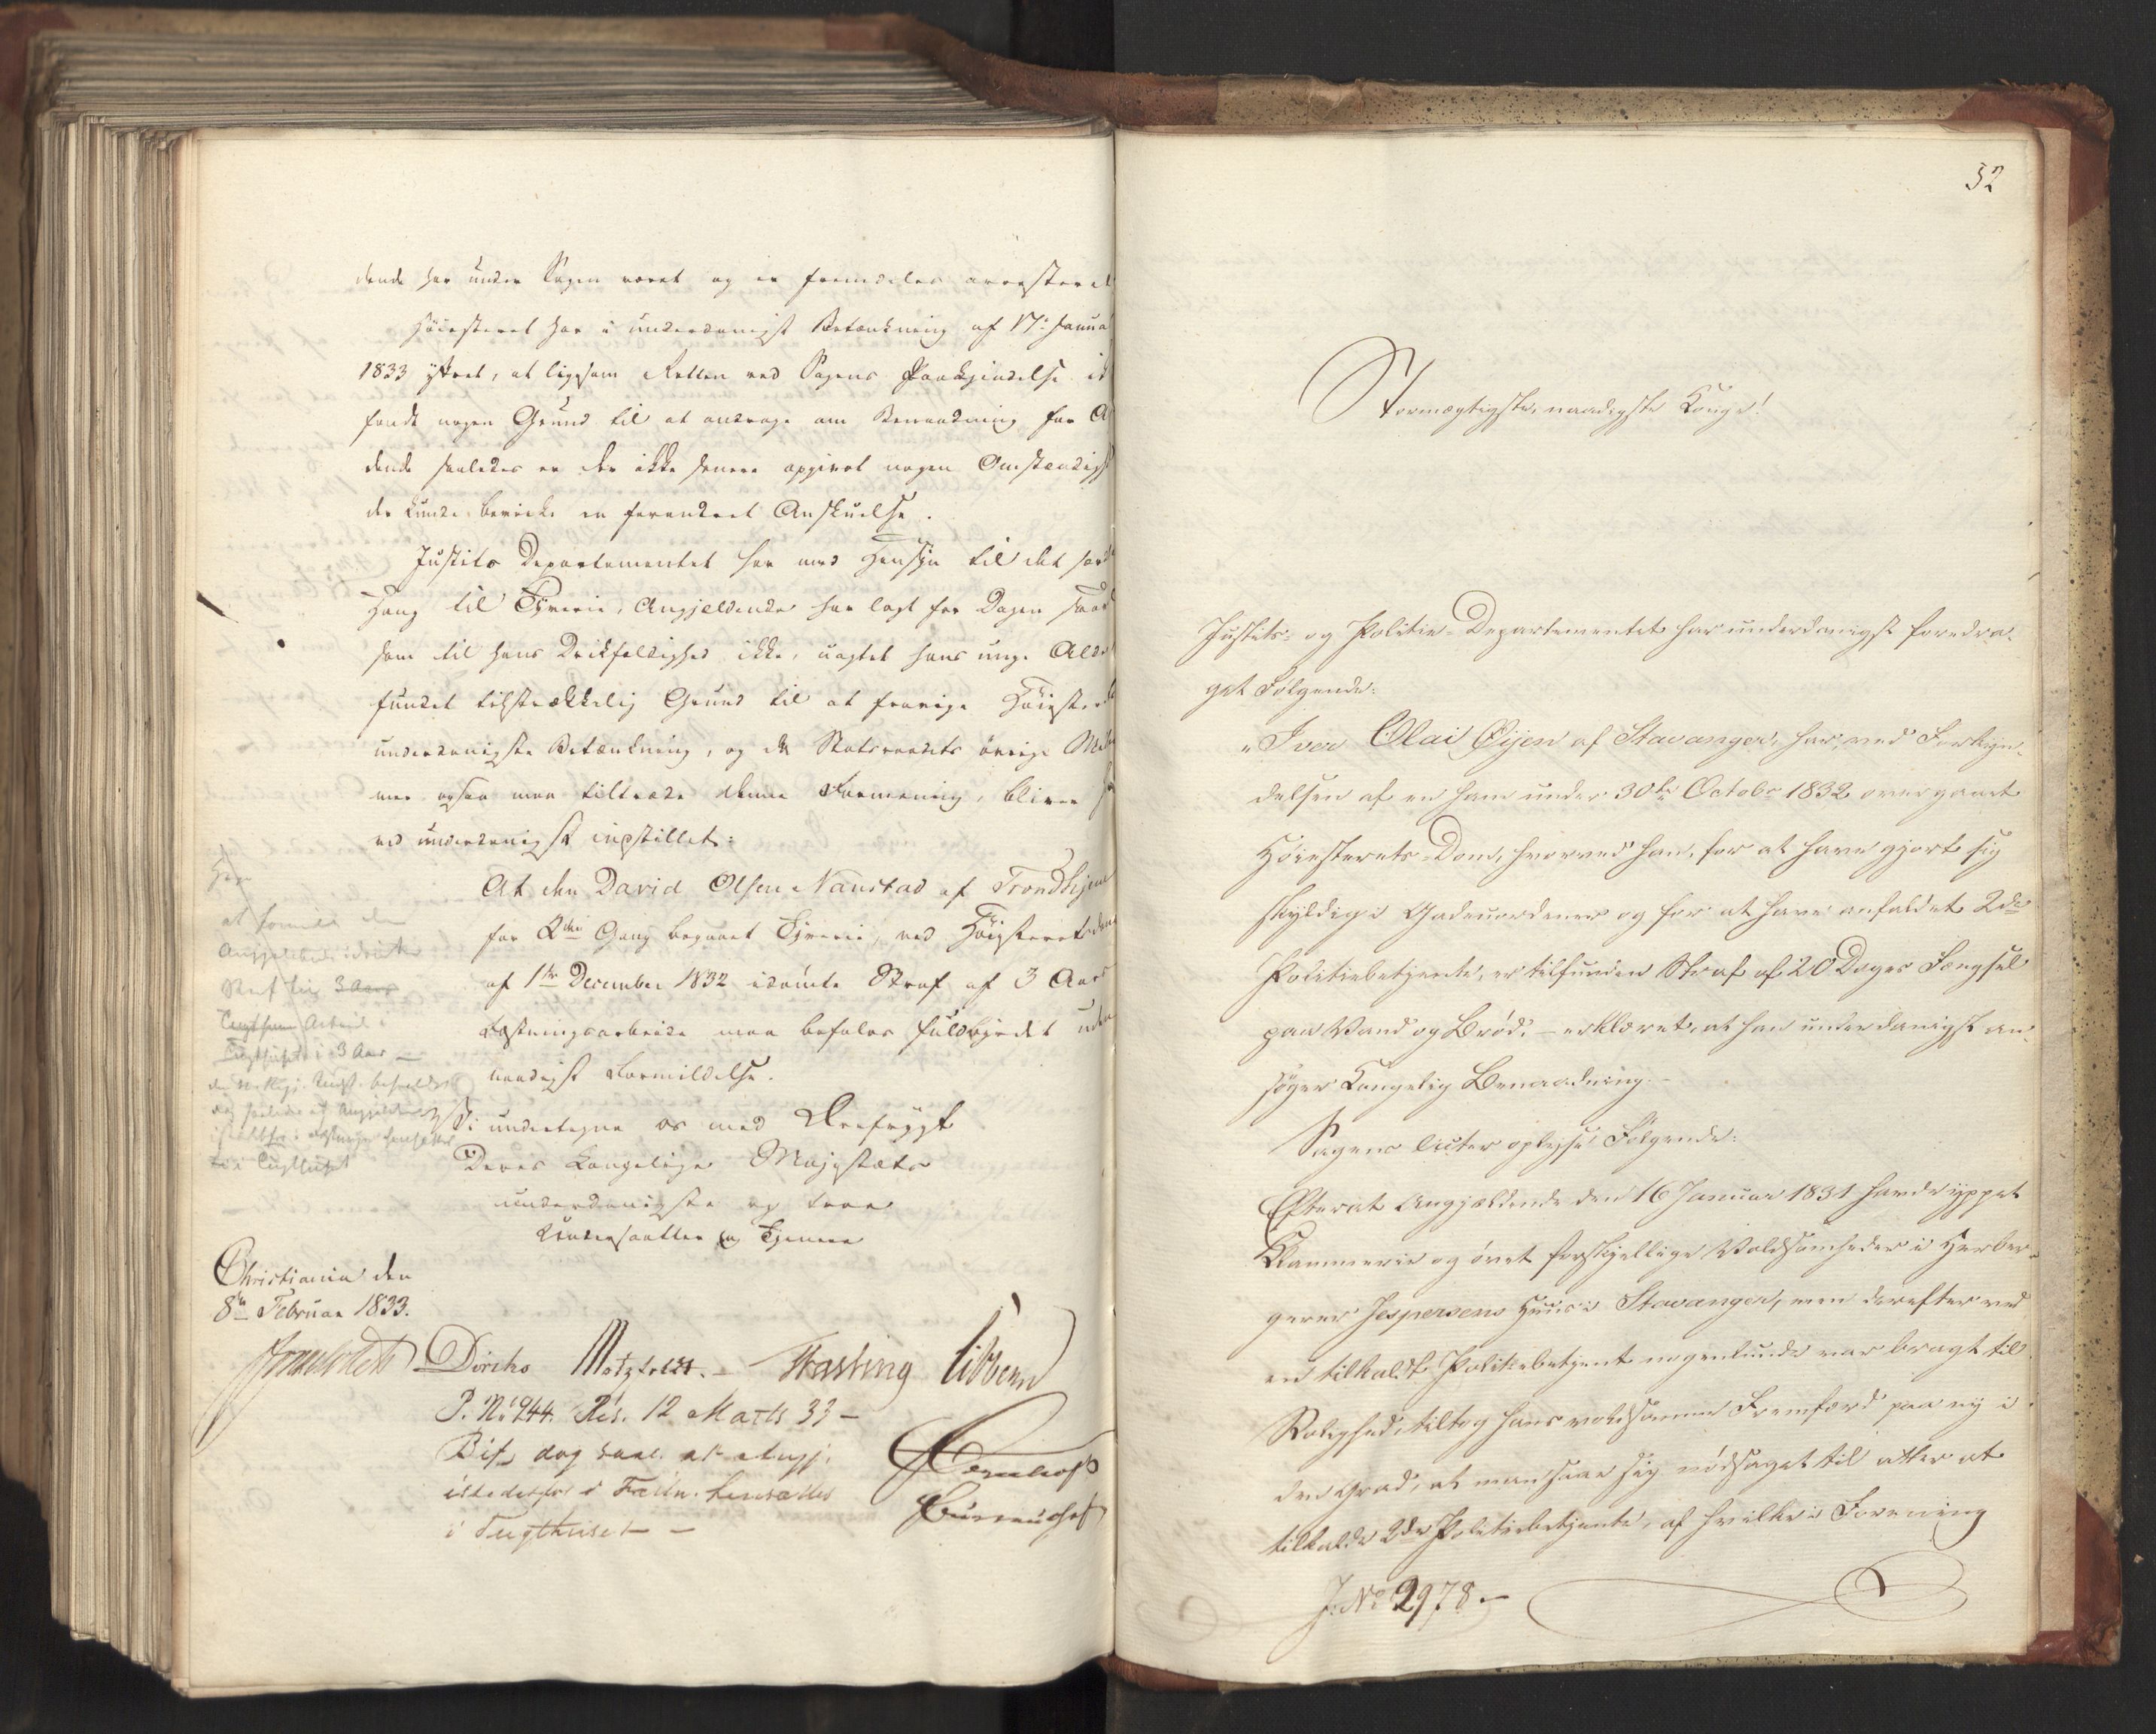 dende har under Sagen været og er fremdeles arresteret
Høiesteret har i underdanigst Betænkning af 17de Janua
1833 yttret, at ligesom Retten ved Sagens Paakjendelse ik
fandt nogen Grund til at andrage om Benaadning for A
dende saaledes er der ikke senere opgivet nogen Omstændigh
der kunde bevirke en forandret Anskuelse.
Justits Departementet har med Hensyn til det
Hang til Tyverie, Angjeldende har lagt for Dagen
som til hans Drikfældighed ikke, uagtet hans unge Alde
fundet tilstrækkelig Grund til at fravige Høiester
underdanigste Betænkning, og da Statsraadets øvrige Med
mer ogsaa maa tiltræde denne Formening, bliver
ved underdanigst indstillet:
At den David Olsen Nanstad af Trondhjem
for 2den Gang begaaet Tyverie, ved Høiesteretsdom
af 1ste December 1832 idømte Straf af 3 Aars
Fæstningsarbeide maa befales fuldbyrdet uden
naadigst Formildelse.
at formilde den
Angjeldende idømte
Straf til 3 Aars
Tugthuus Arbeid i
Tugthuset i 3 Aar —
i Tugthuset
Vi undertegne os med Ærefrygt
Deres Kongelige Majestæts
underdanigste og troe
Undersaatter og Tjenere
Christiania den
8de Februar 1833.
Diriks Motzfeldt. — Fasting Vibbern
P. No 244. Res. 12 Marts 33 —
Bif. dog saal. at Angj.
istedetfor i Fæstn. hensættes
i Tugthuset —
32
Stormægtigste, naadigste Konge!
Justits- og Politie-Departementet har underdanigst foredra-
get Følgende:
"Iver Olai Øijen af Stavanger, har, ved Forkyn-
delsen af en ham under 30te Octobr 1832 overgaaet
Høiesterets-Dom, hvorved han, for at have gjort sig
skyldig i Gadeuordener og for at have anfaldet 2de
Politiebetjente, er tilfunden Straf af 20 Dages Fængsel
paa Vand og Brød, — erklæret, at han underdanigst an-
søger Kongelig Benaadning. —
Sagens Acter oplyse Følgende:
Efterat Angjældende den 16 Januar 1831 havde yppet
Klammerie og øvet forskjellige Voldsomheder i Herber-
gerer Jespersens Huus i Stavanger, men derefter ved
en tilkaldt Politiebetjent nogenlunde var bragt til
Rolighed, tiltog hans voldsomme Fremfærd paa ny i
den Grad, at man saae sig nødsaget til atter at
tilkalde 2de Politiebetjente, af hvilke i Forening
J. No 2978. —